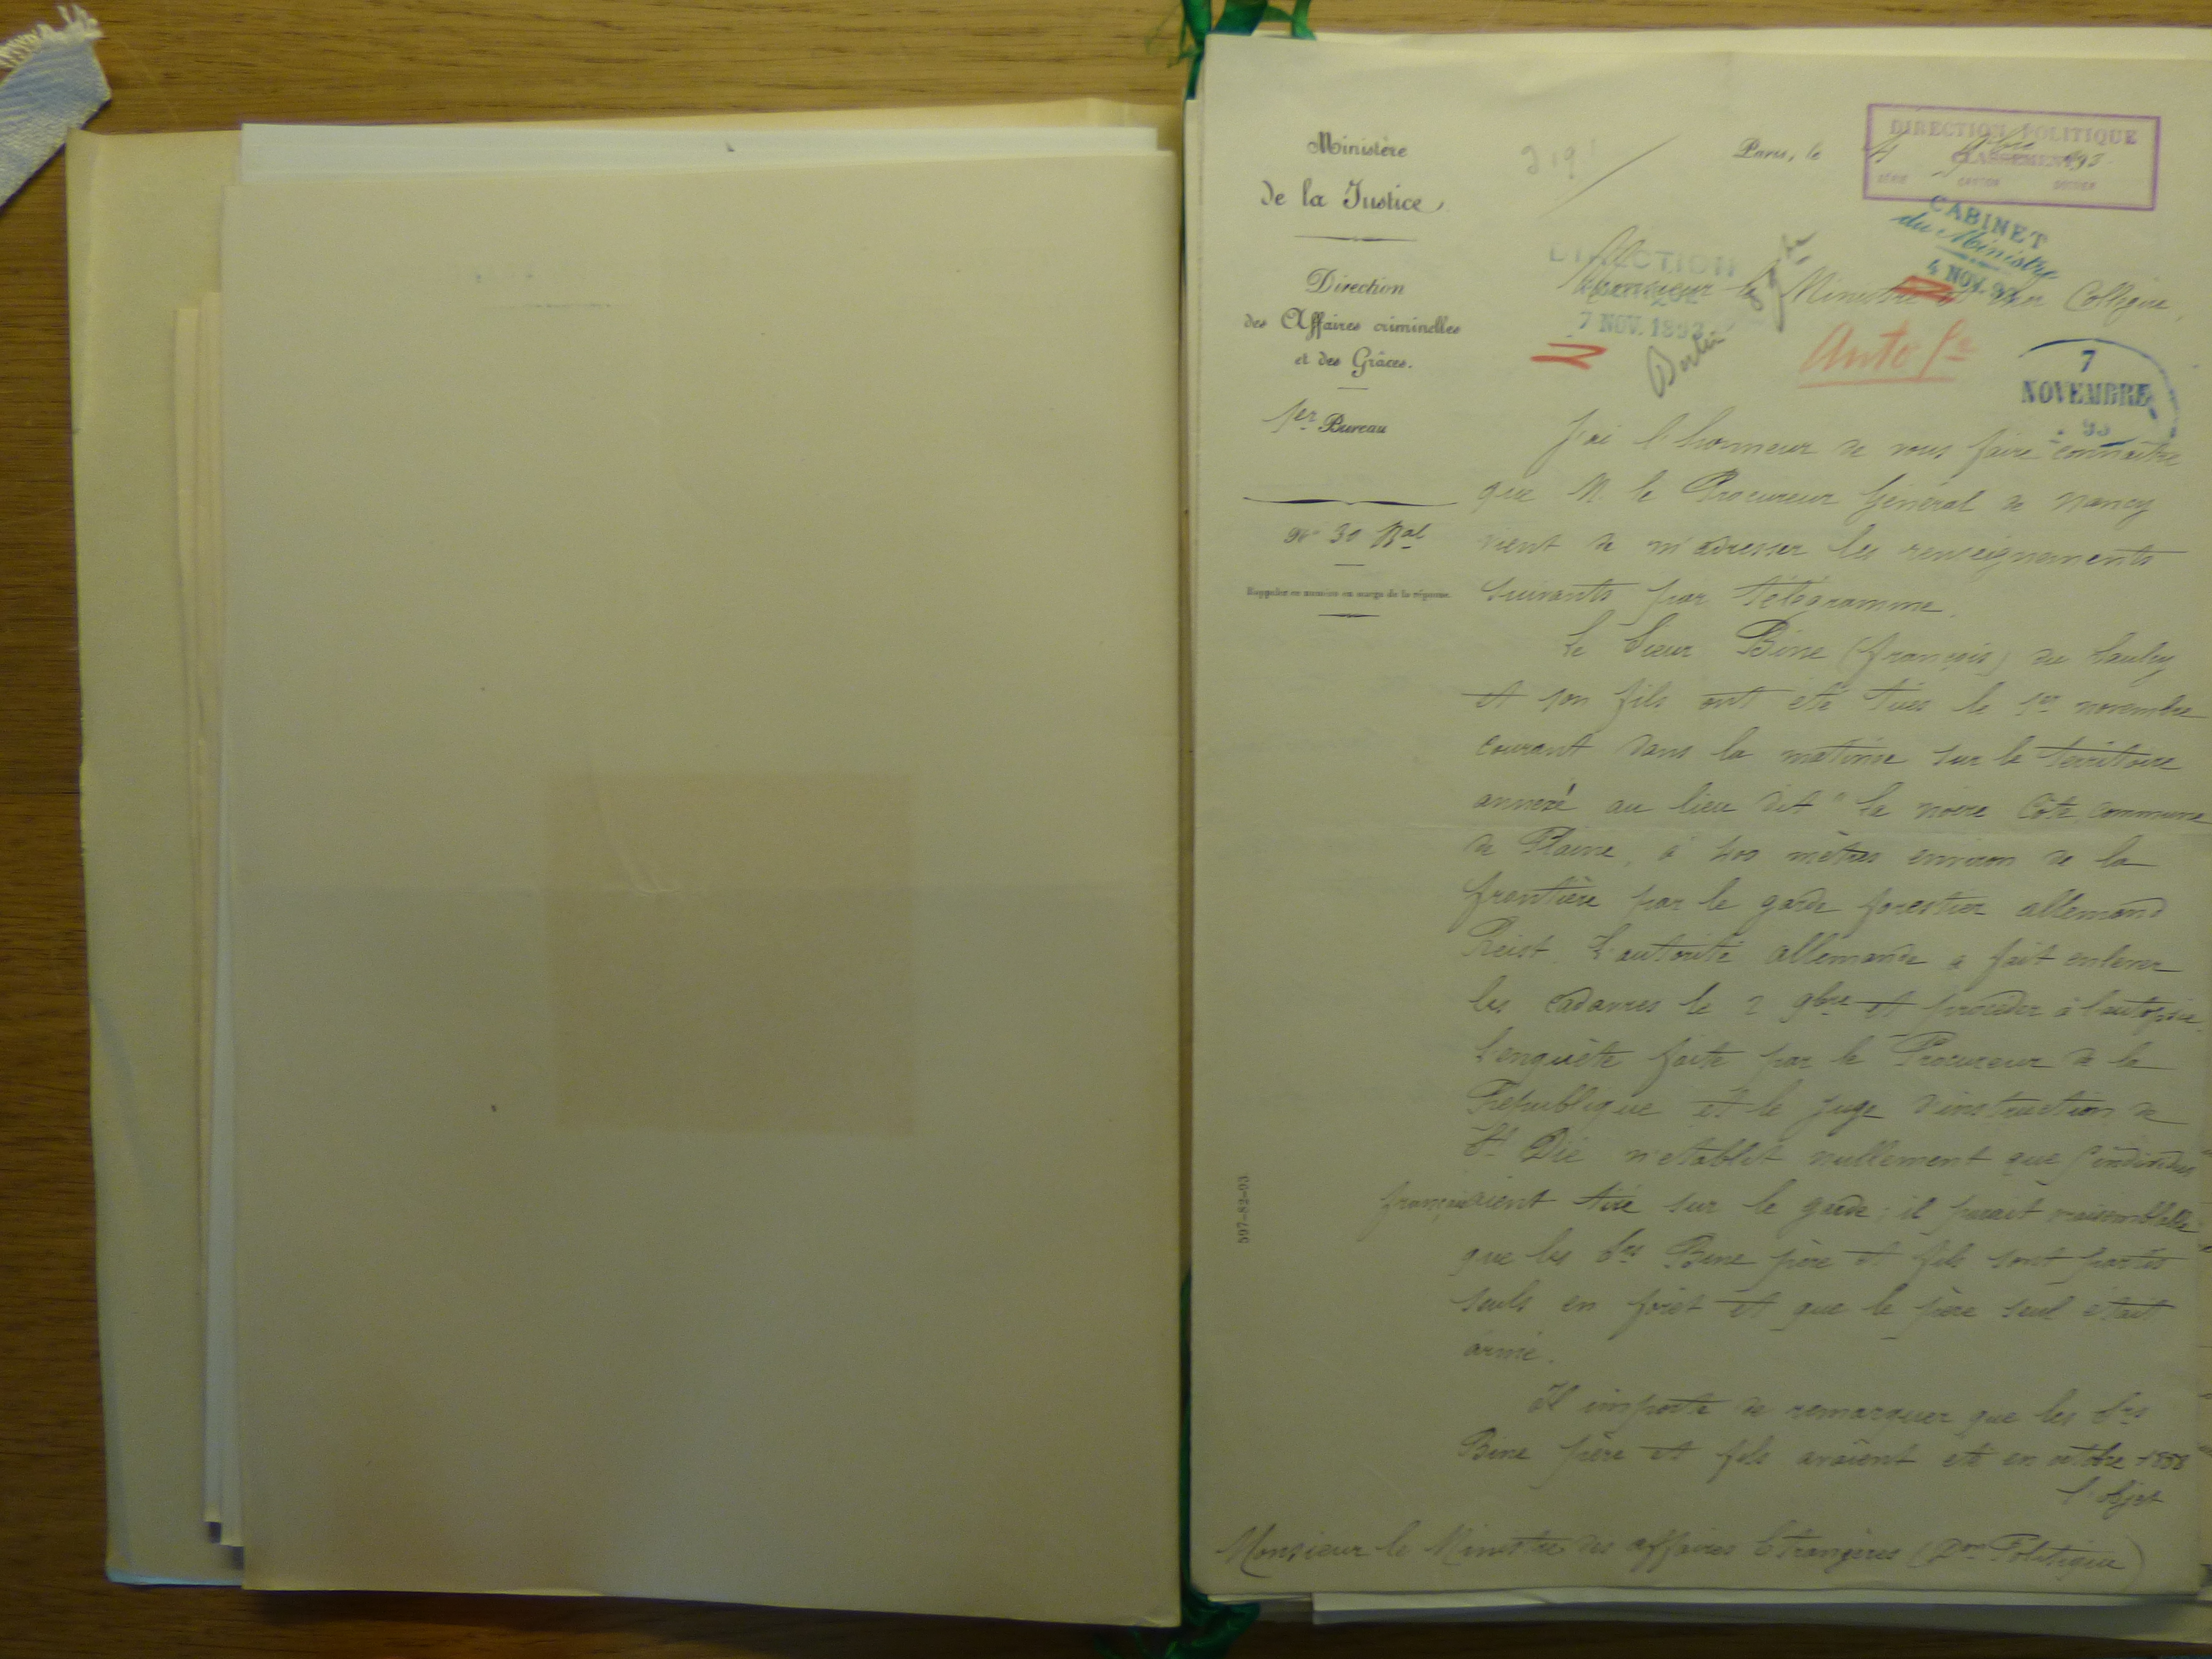 Ministère
de la Justice
Direction
des Affaires criminelles
et des Grâces.
1er Bureau
No 30 Bal
Rappeler ce numéro en marge de la réponse.
597-82-93
219
Paris, le 4 9bre 1893
DIRECTION POLITIQUE
CLASSEMENT
SÉRIE CARTON DOSSIER
CABINET
du Ministre
4 NOV. 93
DIRECTION
7 NOV. 1893
Berlin
Monsieur le Ministre et cher Collègue,
7
NOVEMBRE
93
J'ai l'honneur de vous faire connaître
que M. le Procureur Général de Nancy
vient de m'adresser les renseignements
suivants par télégramme.
Le Sieur Bine (François) du Saulcy
et son fils ont été tués le 1er novembre
courant dans la matinée sur le territoire
annexé au lieu dit "la noire Côte commune
de Plaine, à 400 mètres environ de la
frontière par le garde forestier allemand
Reist. L'autorité allemande a fait enlever
les cadavres le 2 9bre et procéder à l'autopsie.
L'enquête faite par le Procureur de la
République et le juge d'instruction de
St Dié n'établit nullement que l'individus
français aient tiré sur le garde; il parait vraisemblable
que les Srs Bine père et fils sont partis
seuls en forêt et que le père seul était
armé.
Il importe de remarquer que les Srs
Bine père et fils avaient été en octobre 1888
l'objet
Monsieur le Ministre des affaires Etrangères (Don Politique)